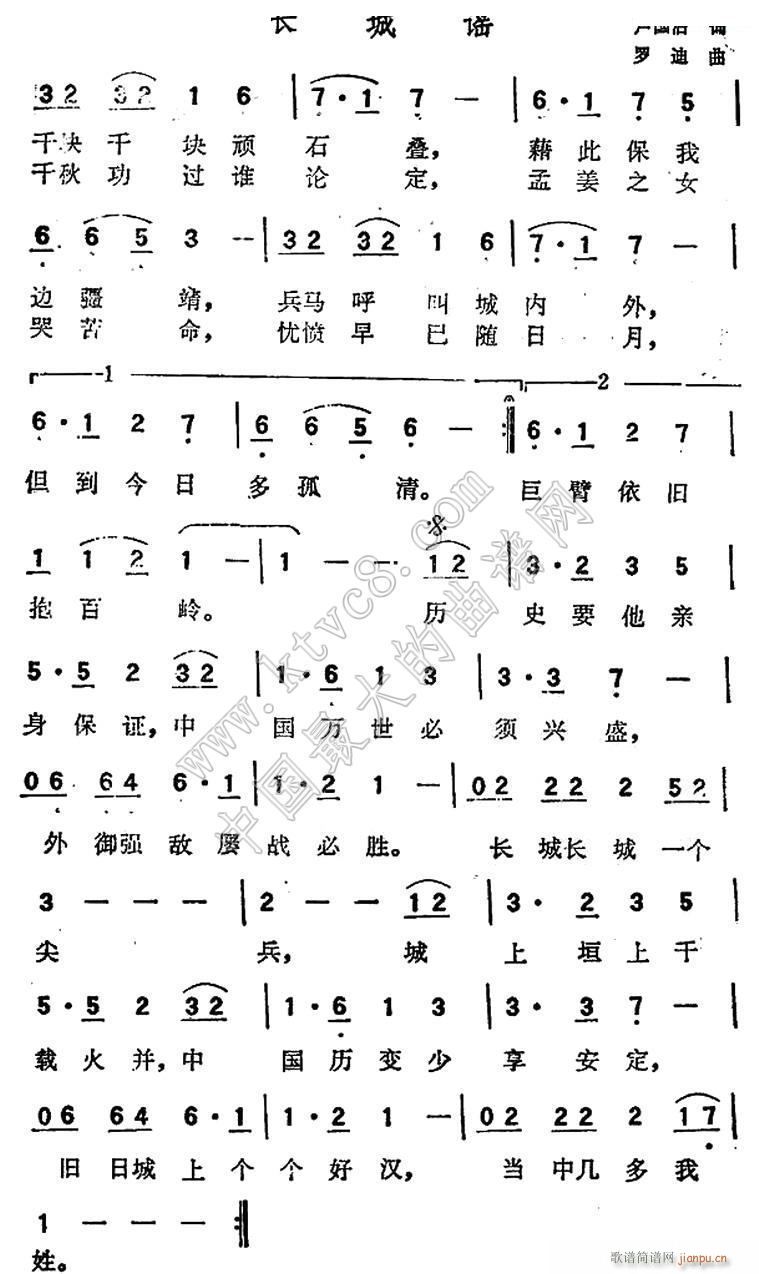 长城谣
罗迪曲
32 32 1 6 | 7·1 7 — | 6·1 7 5 |
千块千块顽石叠，藉此保我
千秋功过谁论定，孟姜之女
6 6 5 3 -- | 32 32 1 6 | 7·1 7 — |
边疆靖，兵马呼叫城内外，
哭苦命，忧愤早已随日月，
1 2
6·1 2 7 | 6 6 5 6 — :‖ 6·1 2 7 |
但到今日多孤清。巨臂依旧
1 1 2 1 — | 1 — — 12 | 3·2 3 5 |
抱百岭。历史要他亲
5·5 2 32 | 1·6 1 3 | 3·3 7 — |
身保证，中国万世必须兴盛，
06 64 6·1 | 1·2 1 — | 02 22 2 52 |
外御强敌屡战必胜。长城长城一个
3 — — — | 2 — — 12 | 3· 2 3 5 |
尖兵，城上垣上千
5·5 2 32 | 1·6 1 3 | 3· 3 7 — |
载火并，中国历变少享安定，
06 64 6·1 | 1·2 1 — | 02 22 2 17 |
旧日城上个个好汉，当中几多我
1 — — — :‖
姓。
www.ktvc8.com
中国最大的曲谱网
歌谱简谱网 jianpu.cn